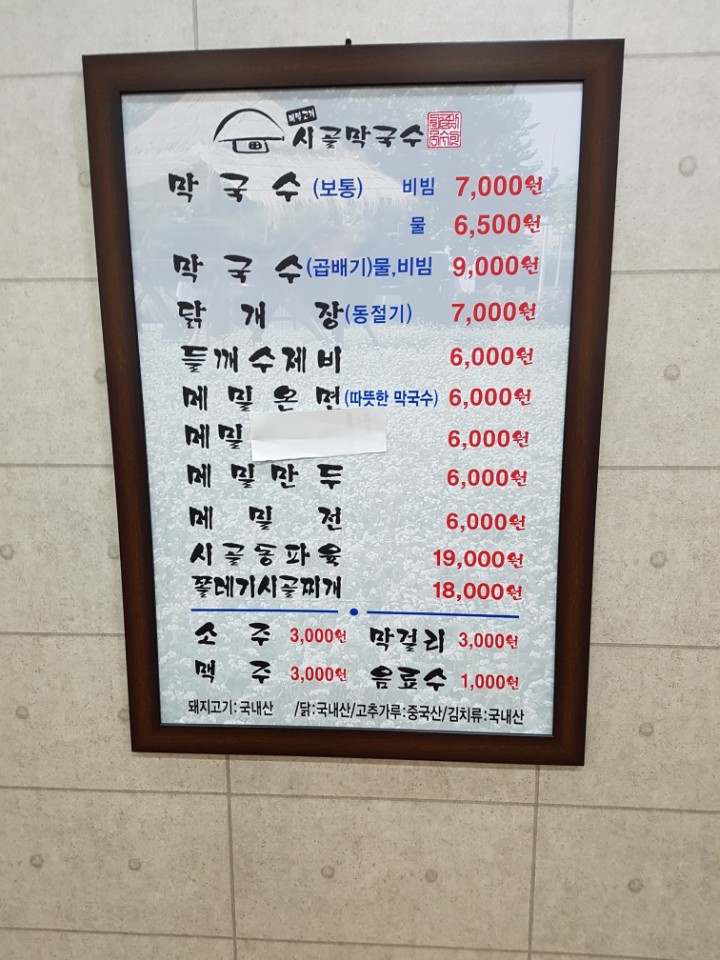 시골막국수
막국수 (보통) 비빔 7,000원
물 6,500원
막국수 (곱배기)물,비빔 9,000원
닭개장 (동절기) 7,000원
들깨수제비 6,000원
메밀온면 (따뜻한 막국수) 6,000원
메밀 6,000원
메밀만두 6,000원
메밀전 6,000원
시골동파육 19,000원
쫄데기시골찌개 18,000원
소주 3,000원 막걸리 3,000원
맥주 3,000원 음료수 1,000원
돼지고기:국내산 /닭:국내산/고추가루:중국산/김치류:국내산